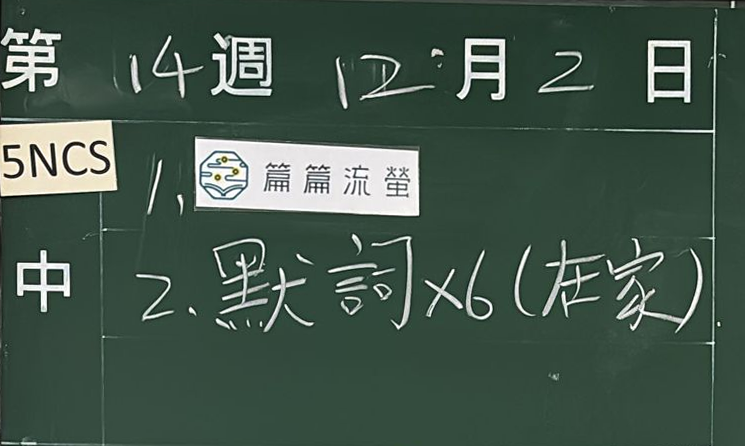 第 14 週 12 月 2 日
5NCS
1. 篇篇流螢
中
2. 默詞×6(在家)